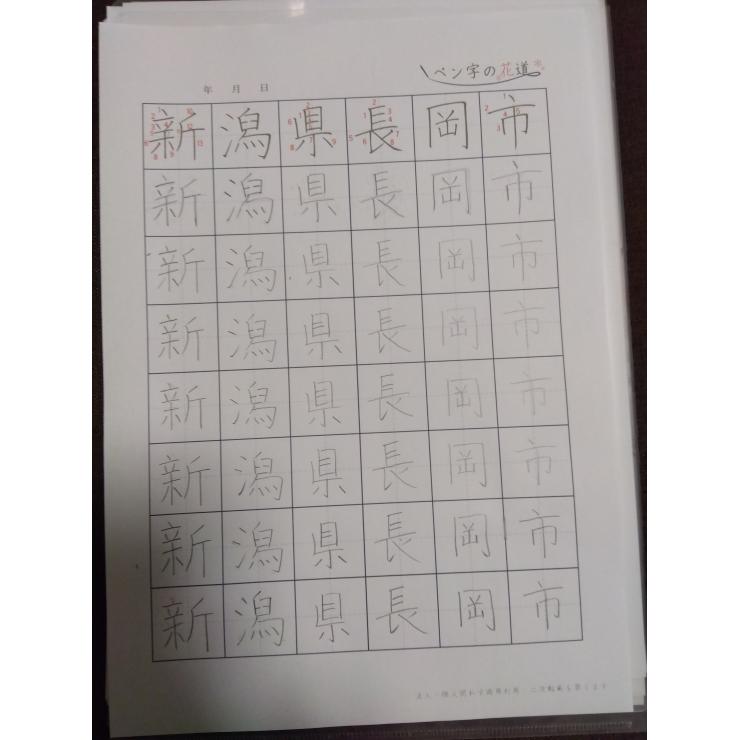 ペン字の花道
年 月 日
新潟県長岡市
新潟県長岡市
新潟県長岡市
新潟県長岡市
新潟県長岡市
新潟県長岡市
新潟県長岡市
新潟県長岡市